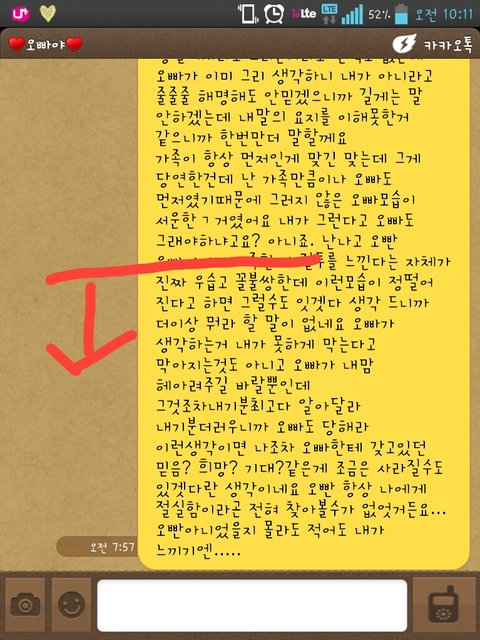 U+
LTE
LTE
52%
오전 10:11
오빠야
카카오톡
오빠가 이미 그리 생각하니 내가 아니라고
줄줄줄 해명해도 안믿겠으니까 길게는 말
안하겠는데 내말의 요지를 이해못한거
같으니까 한번만더 말할께요
가족이 항상 먼저인게 맞긴 맞는데 그게
당연한건데 난 가족만큼이나 오빠도
먼저였기때문에 그러지 않은 오빠모습이
서운한ㄱ거였어요 내가 그런다고 오빠도
그래야하냐고요? 아니죠. 난나고 오빤
를 느낀다는 자체가
진짜 우습고 꼴불쌍한데 이런모습이 정떨어
진다고 하면 그럴수도 잇겟다 생각 드니까
더이상 뭐라 할 말이 없네요 오빠가
생각하는거 내가 못하게 막는다고
막아지는것도 아니고 오빠가 내맘
헤아려주길 바랄뿐인데
그것조차내기분최고다 알아달라
내기분더러우니까 오빠도 당해라
이런생각이면 나조차 오빠한테 갖고있던
믿음? 희망? 기대?같은게 조금은 사라질수도
있겟다란 생각이네요 오빤 항상 나에게
절실함이라곤 전혀 찾아볼수가 없엇거든요...
오빤아니었을지 몰라도 적어도 내가
느끼기엔.....
오전 7:57